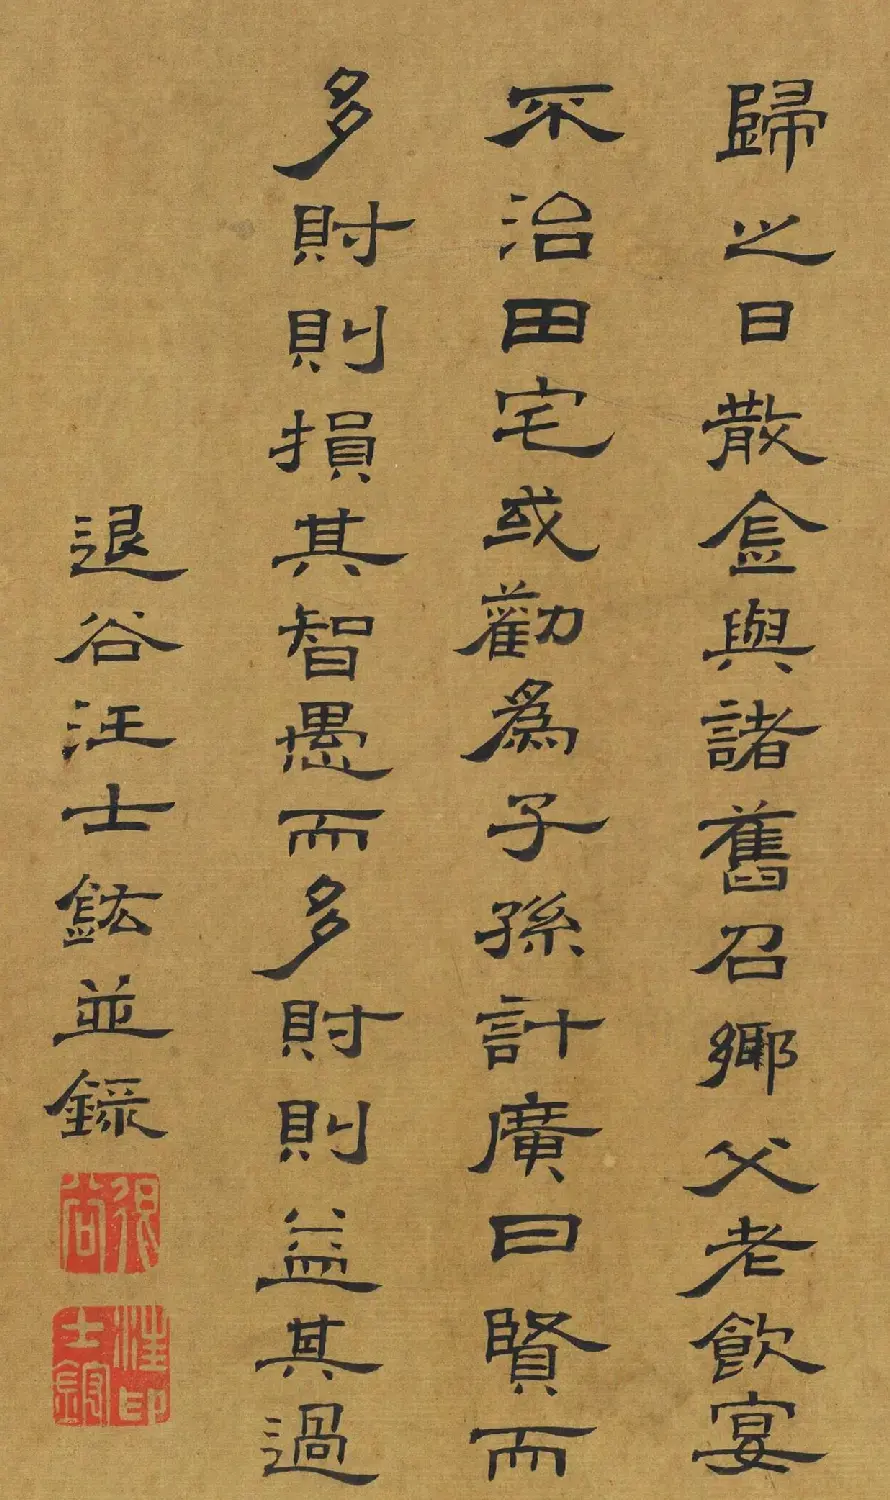 歸之日散金與諸舊召鄉父老飲宴
不治田宅或勸為子孫計廣曰賢而
多財則損其智愚而多財則益其過
退谷汪士鋐並錄
退谷
汪士鋐印